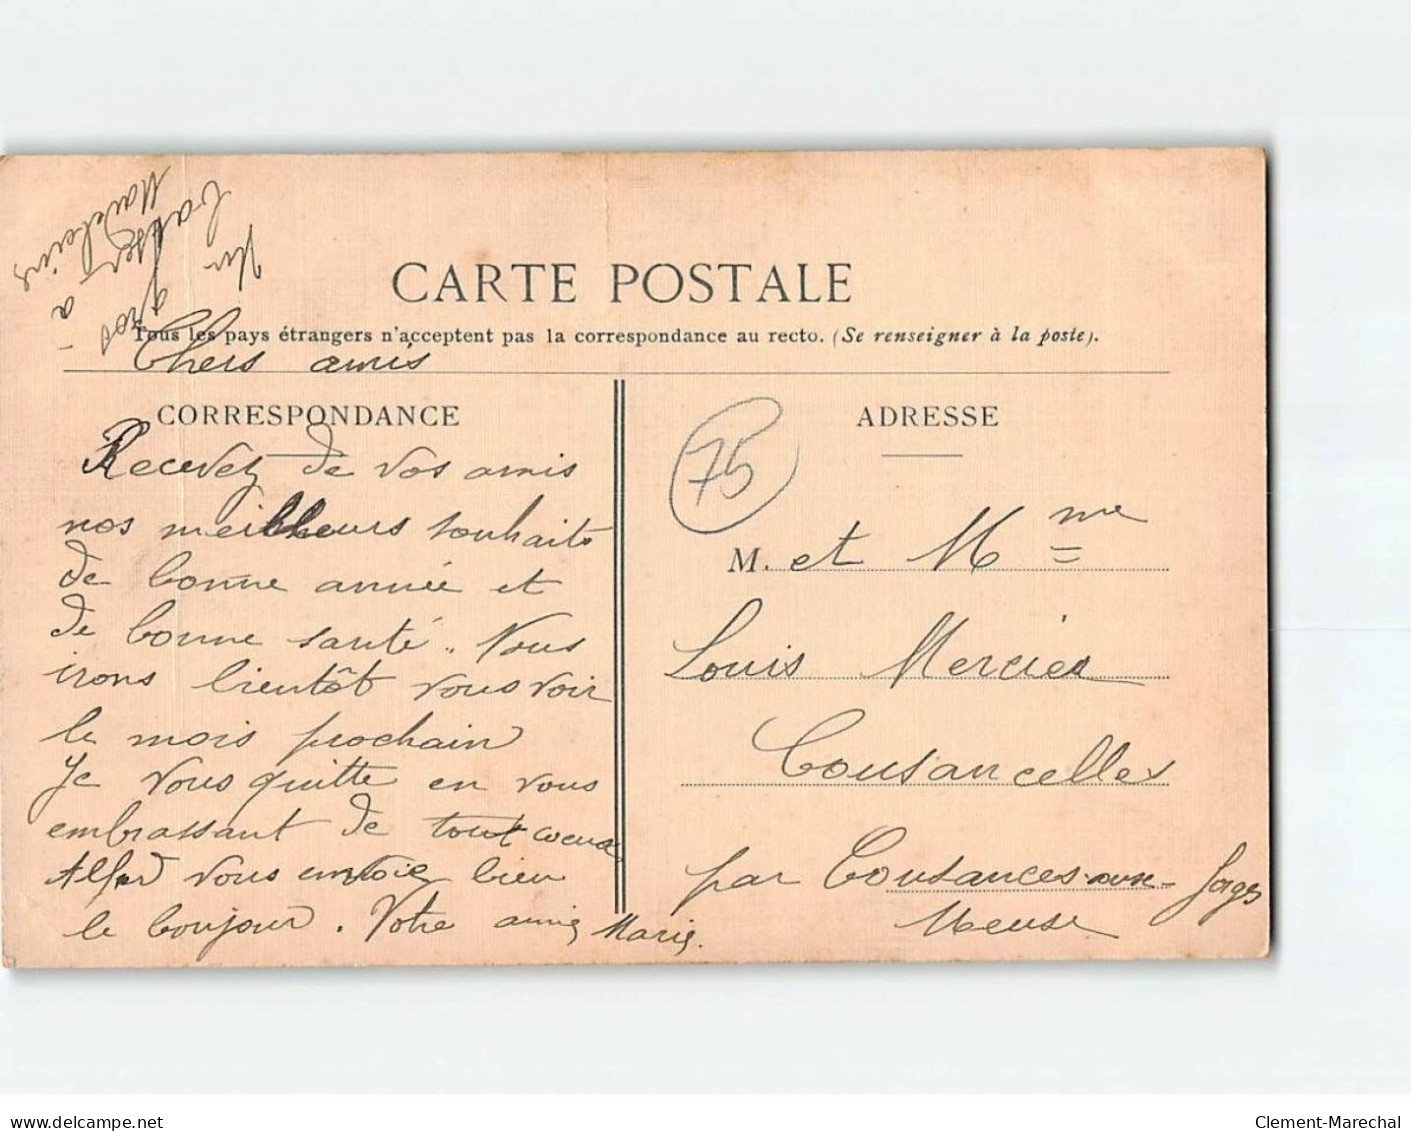 Un gros
baiser à
Madeleine
CARTE POSTALE
Tous les pays étrangers n'acceptent pas la correspondance au recto. (Se renseigner à la poste).
Chers amis
CORRESPONDANCE
Recevez de vos amis
nos meilleurs souhaits
de bonne année et
de bonne santé. Nous
irons bientôt vous voir
le mois prochain
Je vous quitte en vous
embrassant de tout coeur
Alfred vous envoie bien
le bonjour. Votre amie Marie.
75
ADRESSE
M. et Mme
Louis Mercier
Cousancelles
par Cousances-aux-Forges
Meuse
Clement-Marechal